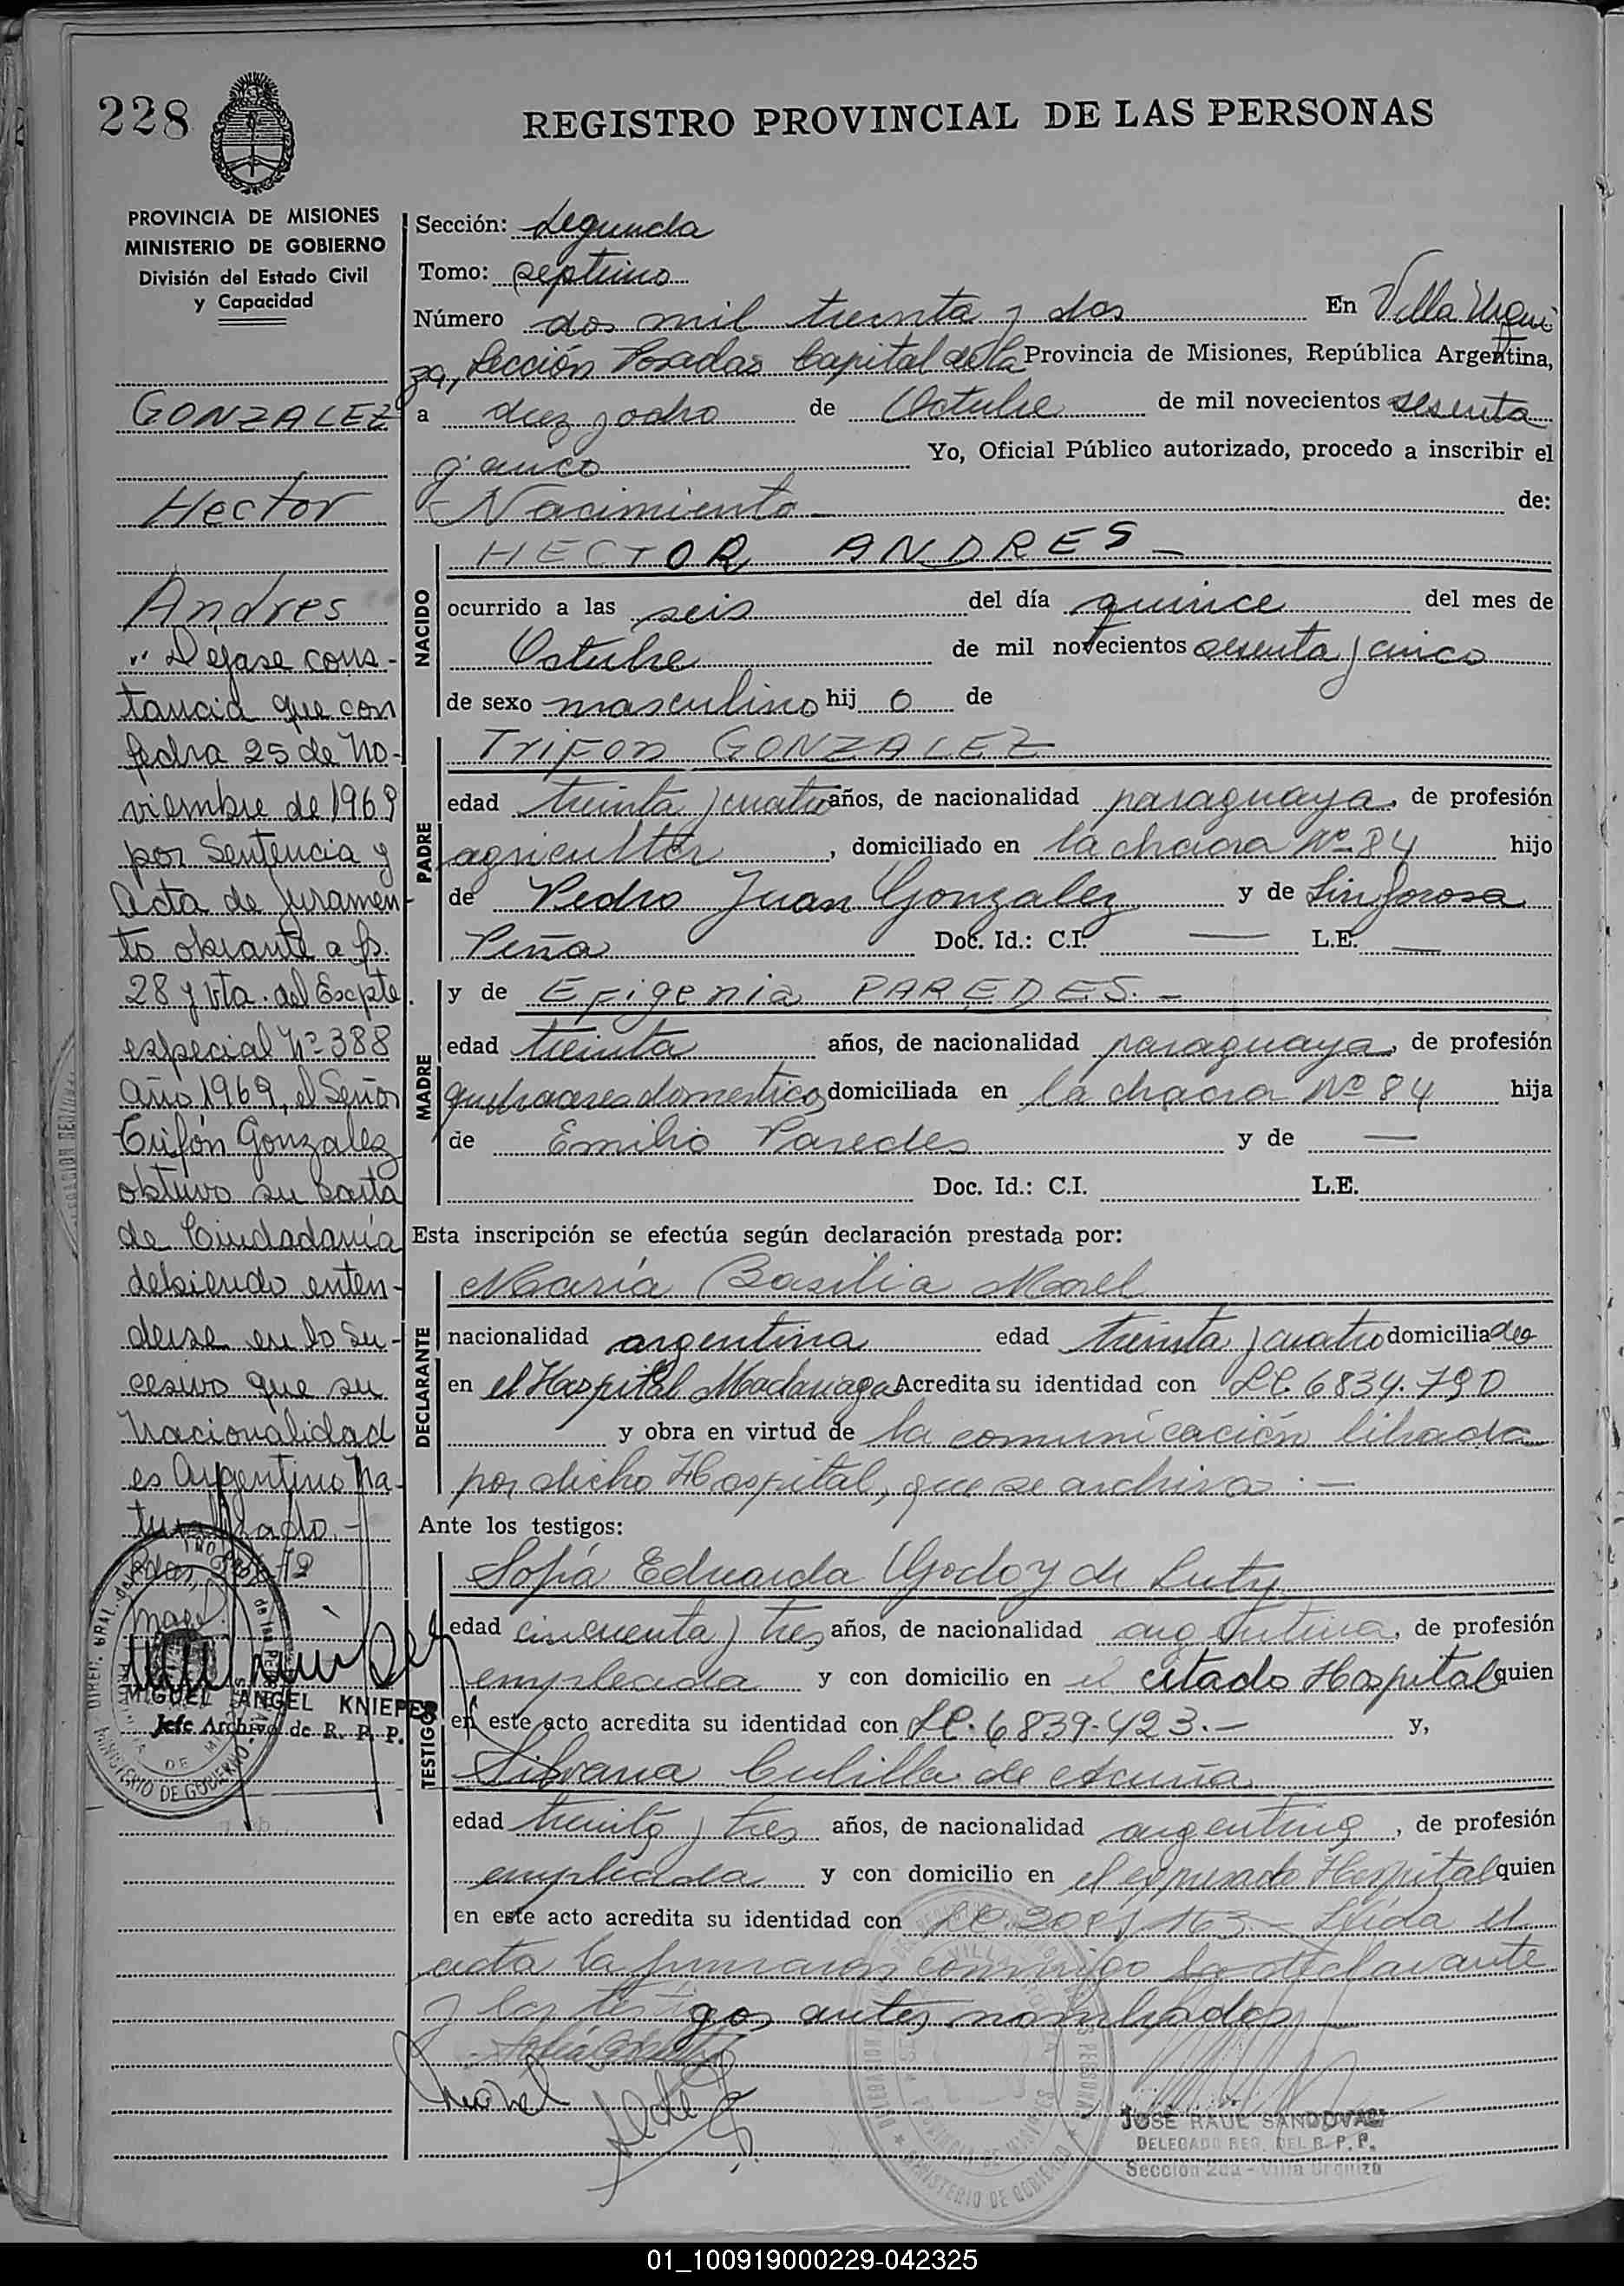 228
REGISTRO PROVINCIAL DE LAS PERSONAS
PROVINCIA DE MISIONES
MINISTERIO DE GOBIERNO
División del Estado Civil
y Capacidad
GONZALEZ
Hector
Andres
Déjase cons-
tancia que con
fecha 25 de No-
viembre de 1969
por Sentencia y
Acta de Juramen-
to obrante a fs.
28 y vta. del Expte.
especial Nº 388
Año 1969, el Señor
Trifón Gonzalez
obtuvo su carta
de Ciudadanía
debiendo enten-
derse en lo su-
cesivo que su
nacionalidad
es Argentino na-
turalizado.-
MIGUEL ANGEL KNIEPER
Jefe Archivo de R. P. P.
Sección: Segunda
Tomo: septimo
Número dos mil treinta y dos En Villa Urqui
za, Sección Posadas Capital de la Provincia de Misiones, República Argentina,
a diez y ocho de Octubre de mil novecientos sesenta
y cinco Yo, Oficial Público autorizado, procedo a inscribir el
Nacimiento - de:
NACIDO
HECTOR ANDRES -
ocurrido a las seis del día quince del mes de
Octubre de mil novecientos sesenta y cinco
de sexo masculino hij o de
PADRE
Trifon GONZALEZ
edad treinta y cuatro años, de nacionalidad paraguaya, de profesión
agricultor, domiciliado en la chacra Nº 84 hijo
de Pedro Juan Gonzalez y de Sinforosa
Peña Doc. Id.: C.I. — L.E. —
MADRE
y de Efigenia PAREDES.-
edad treinta años, de nacionalidad paraguaya, de profesión
quehaceres domesticos, domiciliada en la chacra Nº 84 hija
de Emilio Paredes y de —
Doc. Id.: C.I. L.E.
Esta inscripción se efectúa según declaración prestada por:
DECLARANTE
María Basilia Morel
nacionalidad argentina edad treinta y cuatro domiciliada
en el Hospital Madariaga Acredita su identidad con LC. 6834.790
y obra en virtud de la comunicación librada
por dicho Hospital, que se archiva.-
Ante los testigos:
TESTIGOS
Sofía Eduarda Godoy de Luty
edad cincuenta y tres años, de nacionalidad argentina, de profesión
empleada y con domicilio en el citado Hospital quien
en este acto acredita su identidad con LC. 6839-423.- y,
Silvana Cubilla de Acuña
edad treinta y tres años, de nacionalidad argentina, de profesión
empleada y con domicilio en el expresado Hospital quien
en este acto acredita su identidad con LC. 163.- Leída el
acta la firmaron conmigo la declarante
y los testigos antes nombrados
Morel
JOSE RAUL SANDOVAL
DELEGADO REG. DEL R. P. P.
Sección 2da - Villa Urquiza
01_100919000229-042325